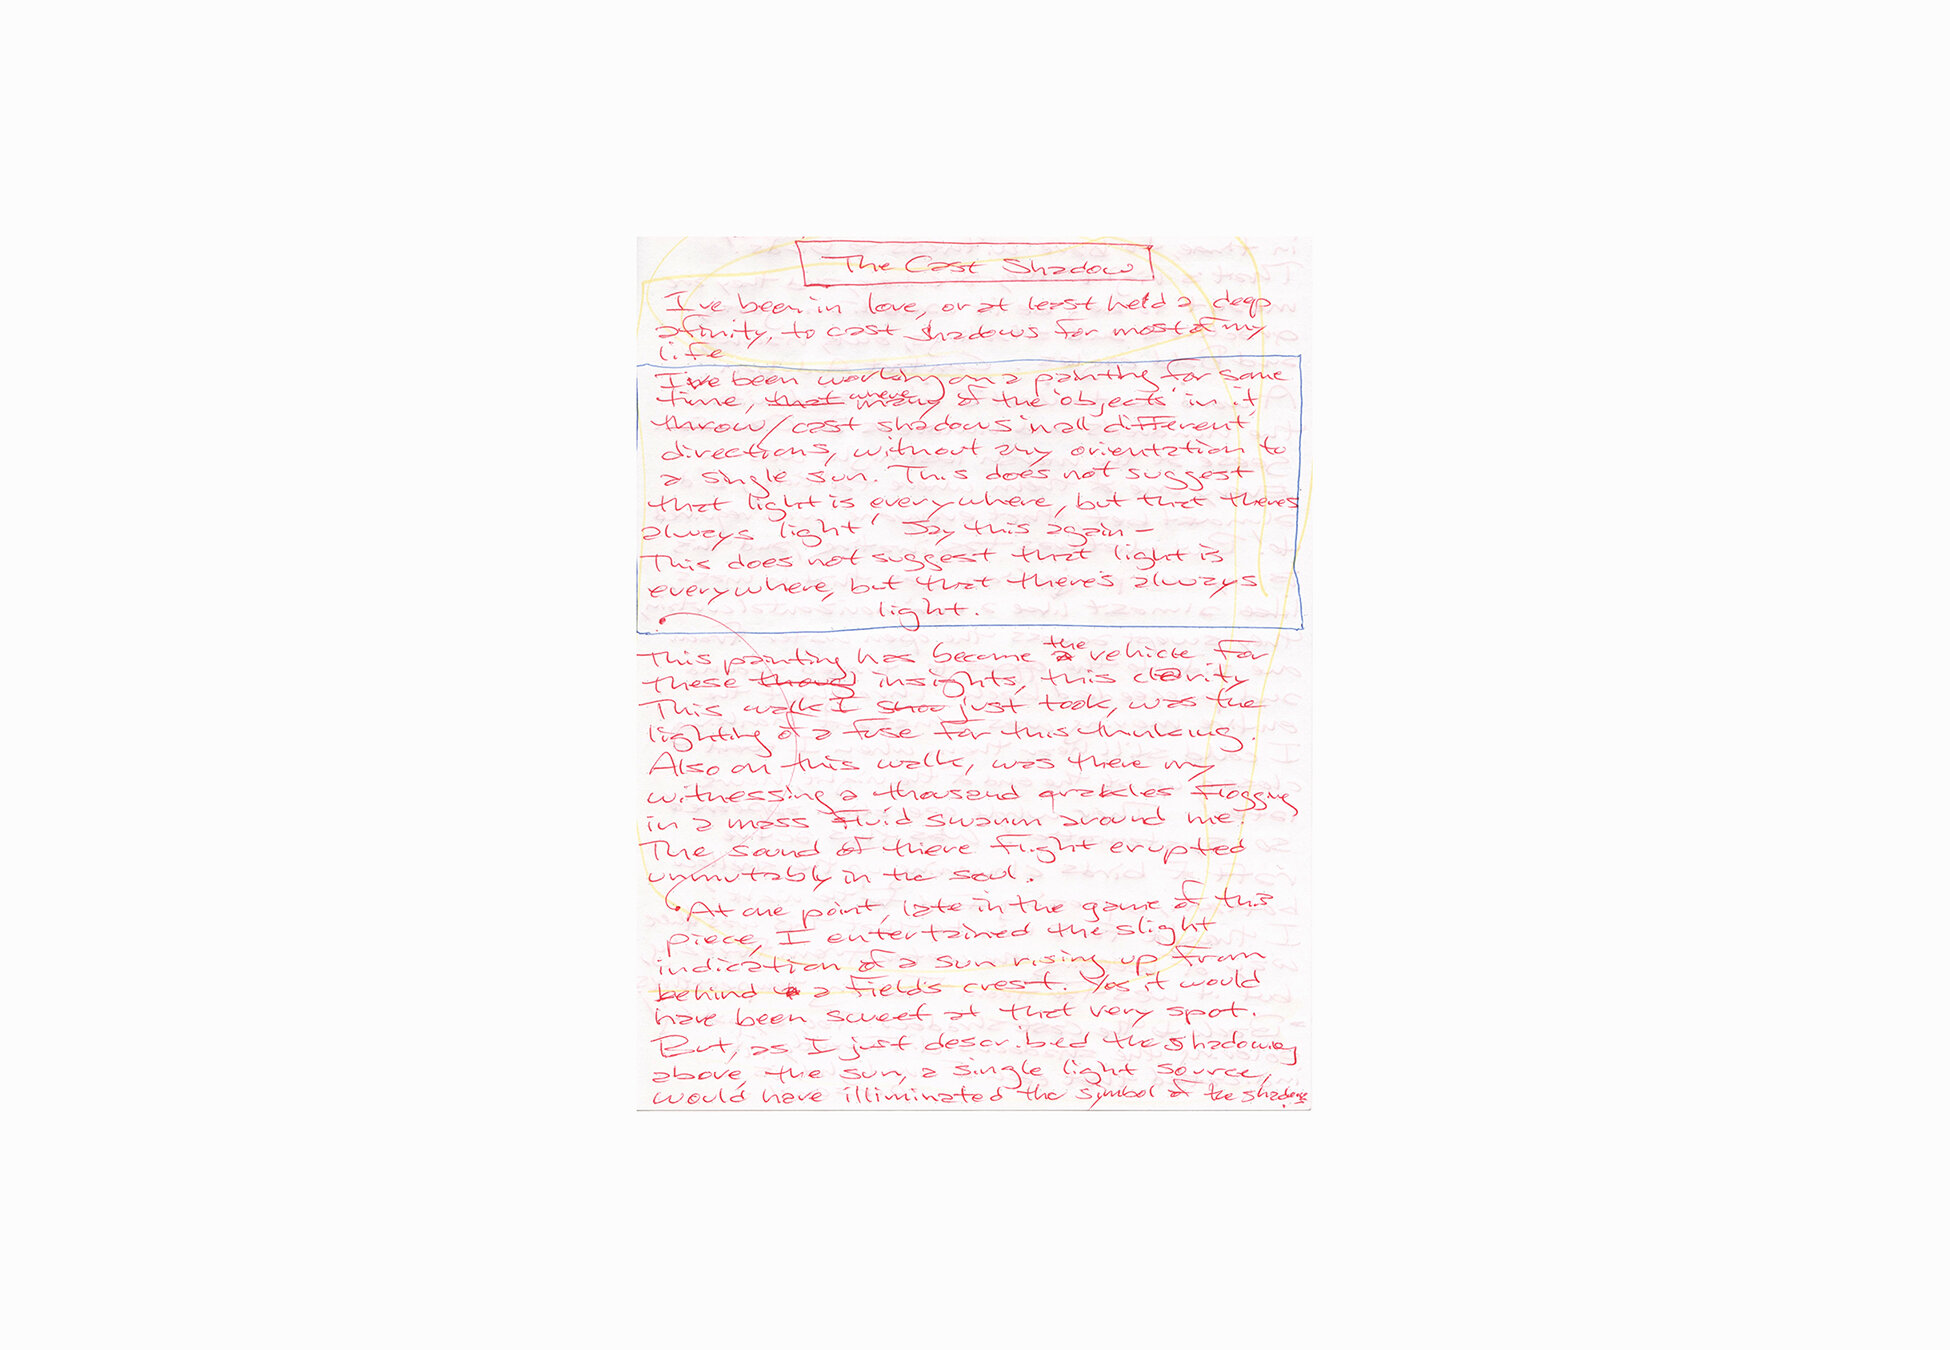 The Cast Shadow
I've been in love, or at least held a deep
afinity, to cast shadows for most of my
life
I've been working on a painting for some
time, that where many of the 'objects' in it
throw/cast shadows in all different
directions, without any orientation to
a single sun. This does not suggest
that light is everywhere, but that there's
always light' Say this again –
This does not suggest that light is
everywhere, but that there's always
light.
This painting has become the a vehicle for
these insights, this clarity
This walk I just took, was the
lighting of a fuse for this thinking.
Also on this walk, was there my
witnessing a thousand grakles flogging
in a mass fluid swarm around me.
The sound of there flight erupted
unmutably in the soul.
• At one point, late in the game of this
piece, I entertained the slight
indication of a sun rising up from
behind a field's crest. Yes it would
have been sweet at that very spot.
But, as I just described the shadowing
above, the sun, a single light source,
would have illiminated the symbol of the shadows